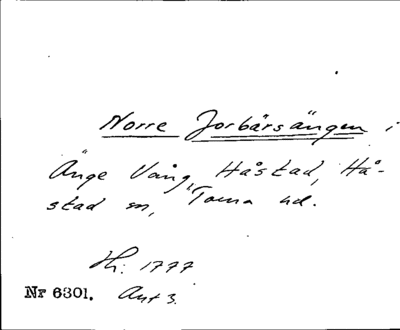 Norre Jorbärsängen i
Änge Vång, Håstad, Hå-
stad sn, Torna hd.
Hi. 1777
Nr 6301. Akt 3.